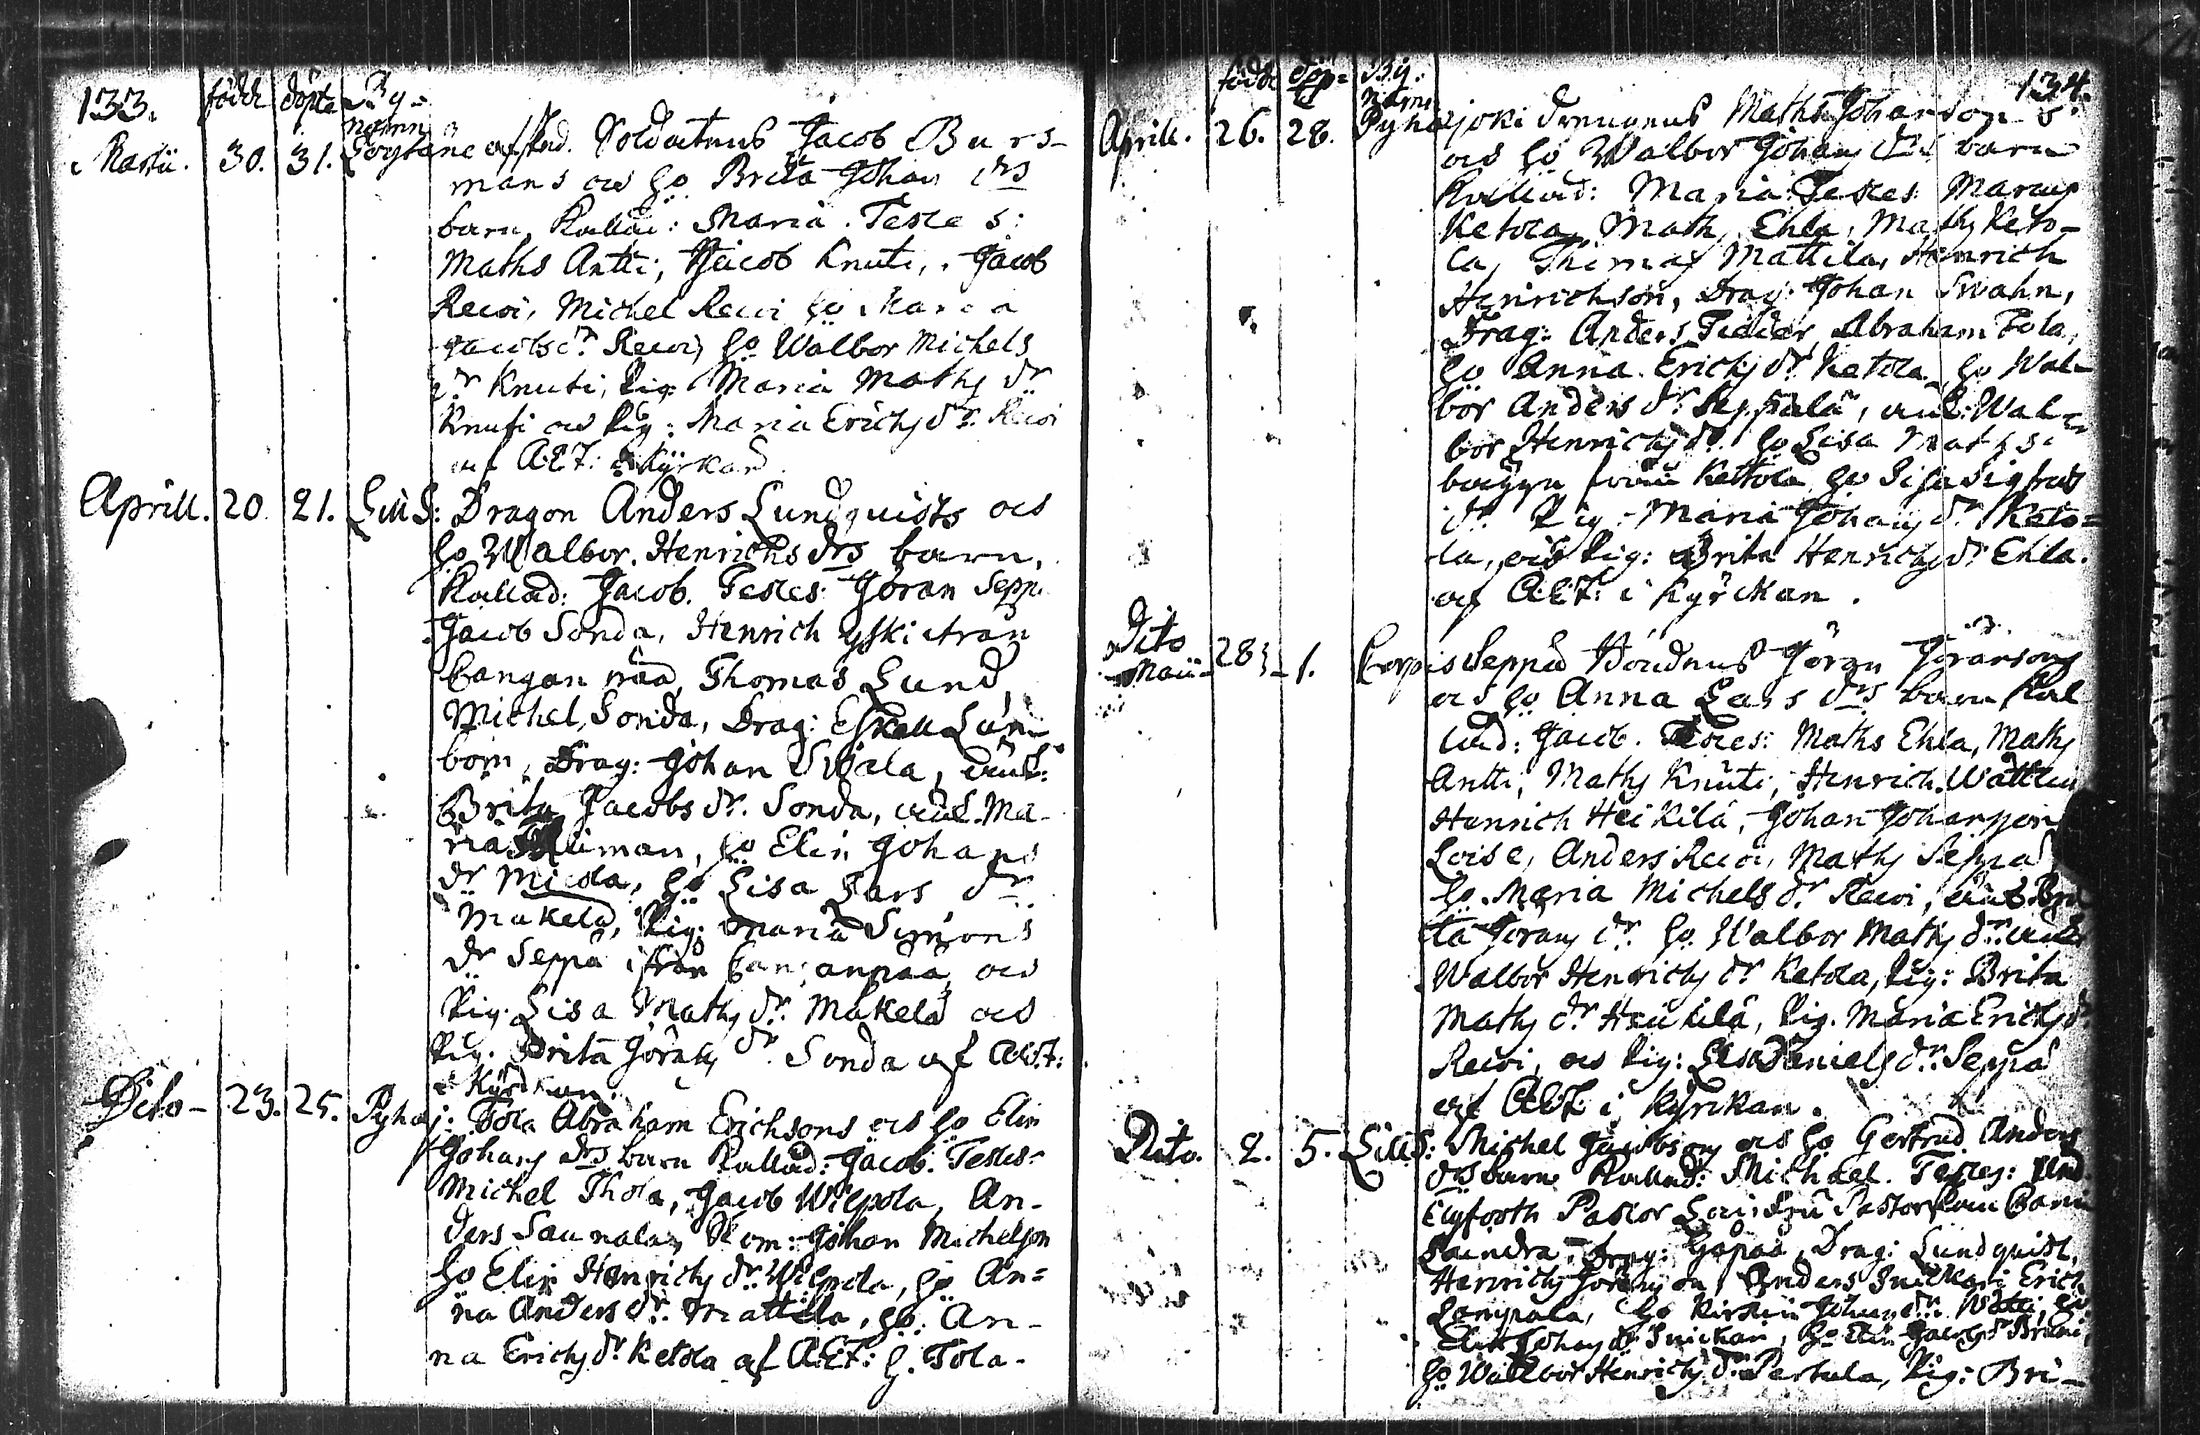 133. födde döpte By=
namn
Martii. 30. 31. Loytäne afsked. Soldatens Jacob Burs-
mans och ho Brita Johans drs
barn, Kallad: Maria. Testes:
Maths Antti, Jacob Knuti, Jacob
Rewoi, Michel Rewoi ho Maria
Jacobs dr Rewoi, ho Walbor Michels
dr Knuti, Pig: Maria Maths dr
Knuti och Pig: Maria Erichs dr. Rewoi
af A:E:F: i Kyrkan.
Aprill. 20. 21. Lill S: Dragon Anders Lundquists och
ho Walbor Henrichs drs barn,
Kallad: Jacob. Testes: Göran Seppä
Jacob Sonda, Henrich yski ifrån
Cangan pää, Thomas Lund,
Michel Sonda, Drag: Eskell Lun-
bom, Drag: Johan Swala,
Brita Jacobs dr. Sonda, Ma-
ria, ho Elin Johans
dr Micola, ho Lisa Lars dr
Mäkelä, Pig: Maria Simons
dr Seppä ifrån Canganpää, och
Pig: Lisa Maths dr. Mäkelä och
Pig: Brita Görans dr Sonda af A:E:F:
i Kyrckan.
Dito - 23. 25. Pyhäj: Tola Abraham Erichsons och ho Elin
Johans drs barn Kallad: Jacob. Testes:
Michel Thola, Jacob Wilpola, An-
ders Saunala, Johan Michelson
ho Elin Henrichs dr. Wilpola, ho An=
na Anders dr. Mattila, ho An-
na Erichs dr. Ketola af A:E:F: h. Tola.
134.
född döp= By:
te namn
Aprill. 26. 28. Pyhäjoki drengens Maths Johansons
och ho Walbor Johans drs barn
Kallad: Maria. Testes: Marcus
Ketola, Maths Ehla, Maths Keto-
la, Thomas Mattila, Henrich
Henrichson, Drag: Johan Swahn,
Drag: Anders, Abraham Tola,
ho Anna Erichs dr. Ketola, ho Wal-
bor Anders dr. Seppälä, Wal-
bor Henrichs dr. ho Lisa Maths
från Kettola, ho Lisa Sigfrids
dr. Pig: Maria Johans dr Keto=
la, och Pig: Brita Henrichs dr Ehla.
af A:E:F: i Kyrckan.
Dito
Maii - 28. 1. Corpis Seppä Bondens Göran Göransons
och ho Anna Lars drs barn Kal
lad: Jacob. Testes: Maths Ehla, Maths
Antti, Maths Knuti, Henrich
Henrich Heikilä, Johan Johansson
Loise, Anders Rewoi, Maths Seppä
ho Maria Michels dr Rewoi, Bri
ta Görans dr. ho Walbor Maths dr.
Walbor Henrichs dr Ketola, Pig: Brita
Maths dr Heikilä, Pig. Maria Erichs dr
Rewoi, och Pig: Lisa Daniels dr. Seppä
af A:E:F: i Kyrckan.
Dito. 2. 5. Lill S: Michel Jacobsons och ho Gertrud Anders
drs barn Kallad: Michael. Testes:
Elgfooth Pastor
Drag: Drag: Lundquist,
Henrich Göransson, Anders Erich
Lempälä, ho Kirstin Johans dr.
Elin Johans dr, ho Elin Jacobs dr
ho Walbor Henrichs dr Pertula, Pig: Bri-